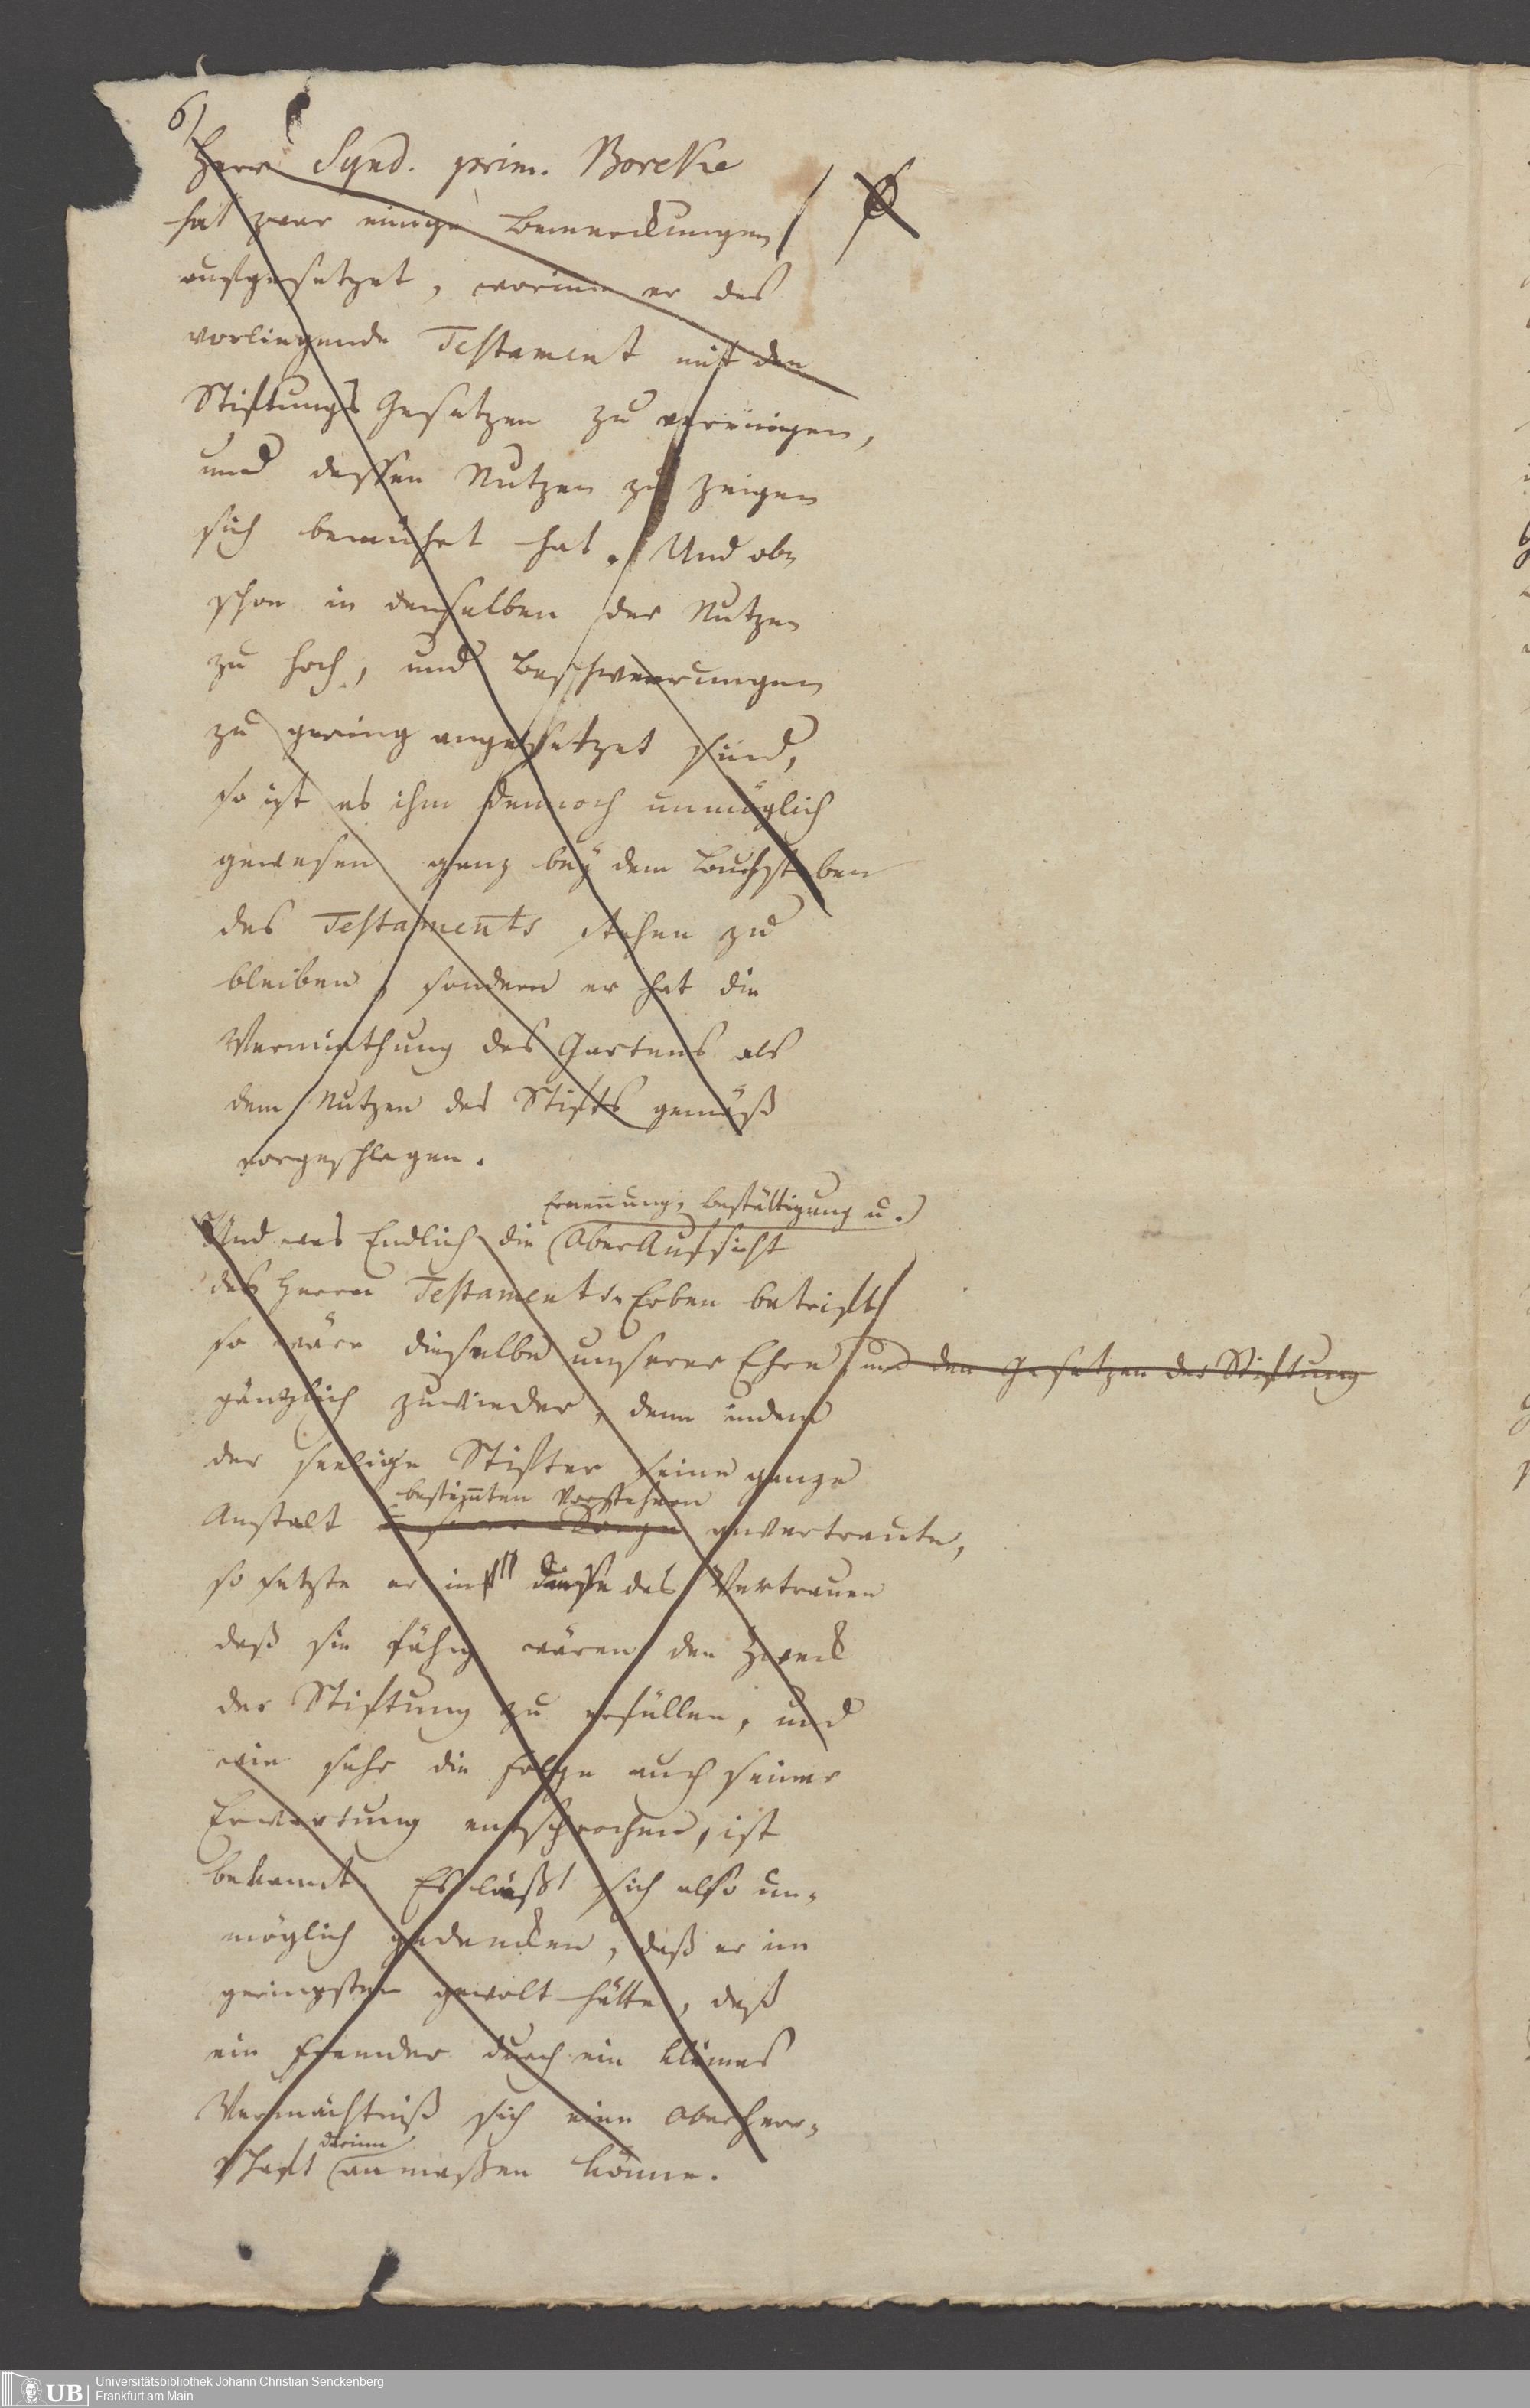 6)
Herr Synd. prim. Borcke
hat zwar einige Bemerckungen
aufgesetzet, worinn er das
vorliegende Testament mit den
Stiftungs Gesetzen zu vereinigen,
und dessen Nutzen zu zeigen
sich bemühet hat. Und ob
schon in denselben der Nutzen
zu hoch, und Beschwerungen
zu gering angesetzet sind,
so ist es ihm dennoch unmöglich
gewesen ganz bey dem Buchstaben
des Testaments stehen zu
bleiben, sondern er hat die
Vermiethung des Gartens als
dem Nutzen des Stifts gemäß
vorgeschlagen.
Ernennung, Bestättigung u.
Und was Endlich die OberAufsicht
des Herrn Testaments-Erben betrift
so wäre dieselbe unserer Ehre und den Gesetzen der Stiftung
gäntzlich zuwieder, denn indem
der seelige Stifter seine ganze
bestimten Vorstehern
Anstalt unserer Sorge anvertraute,
so setzte er in diese das Vertrauen
daß sie fähig wären den Zweck
der Stiftung zu erfüllen, und
wie sehr die Folge auch seiner
Erwartung entsprochen, ist
bekandt. Es läßt sich also un-
möglich gedencken, daß er im
geringsten gewolt hätte, daß
ein Fremder durch ein kleines
Vermächtniß sich eine Oberherr-
darinn
schaft anmaßen könne.
UB Universitätsbibliothek Johann Christian Senckenberg
Frankfurt am Main